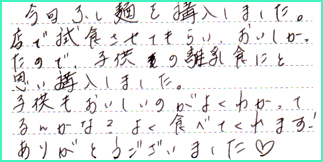 今回ふし麺を購入しました。
店で試食させてもらい、おいしかっ
たので、子供の離乳食にと
思い購入しました。
子供もおいしいのがよくわかって
るんかな?よく食べてくれます!
ありがとうございました♡